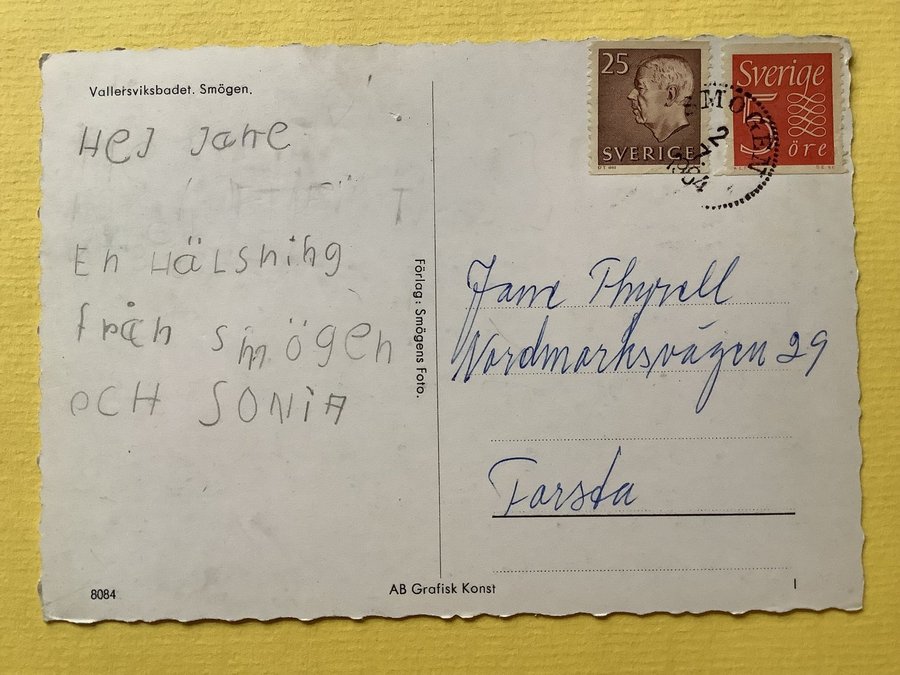 Vallersviksbadet. Smögen.
Hej Jane
En Hälsning
från Smögen
OCH SONIA
Förlag: Smögens Foto.
25
SVERIGE
Sverige
5
öre
SMÖGEN
2
1964
Jane Thyrell
Nordmarksvägen 29
Farsta
8084
AB Grafisk Konst
1